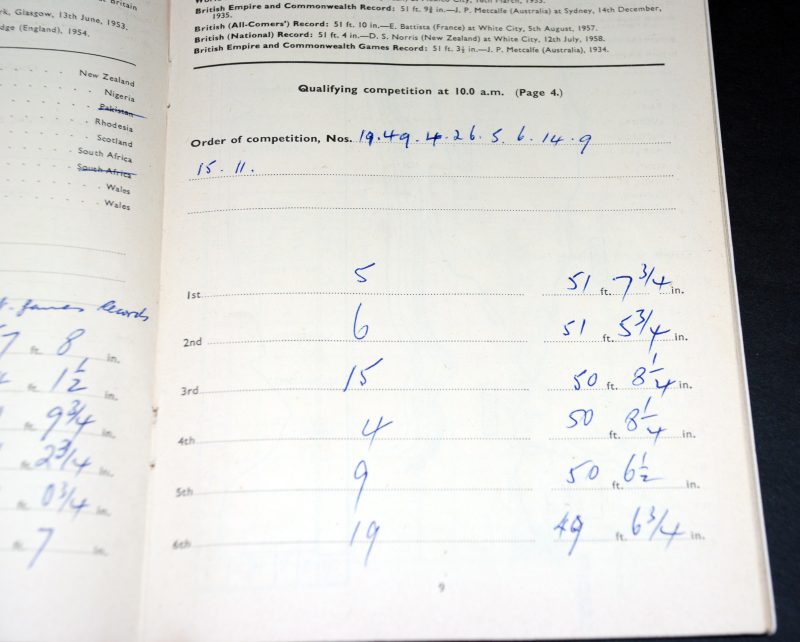 rk, Glasgow, 13th June, 1953.
dge (England), 1954.
New Zealand
Nigeria
Pakistan
Rhodesia
Scotland
South Africa
South Africa
Wales
Wales
Games Records
7 ft. 8 in.
1 1/2 in.
ft. 9 3/4 in.
ft. 2 3/4 in.
ft. 0 3/4 in.
ft. 7 in.
British Empire and Commonwealth Record: 51 ft. 9¾ in.—J. P. Metcalfe (Australia) at Sydney, 14th December,
1935.
British (All-Comers') Record: 51 ft. 10 in.—E. Battista (France) at White City, 5th August, 1957.
British (National) Record: 51 ft. 4 in.—D. S. Norris (New Zealand) at White City, 12th July, 1958.
British Empire and Commonwealth Games Record: 51 ft. 3½ in.—J. P. Metcalfe (Australia), 1934.
Qualifying competition at 10.0 a.m. (Page 4.)
Order of competition, Nos. 19.49.4.26.5.6.14.9
15.11.
1st 5 51 ft. 7 3/4 in.
2nd 6 51 ft. 5 3/4 in.
3rd 15 50 ft. 8 1/4 in.
4th 4 50 ft. 8 1/4 in.
5th 9 50 ft. 6 1/2 in.
6th 19 49 ft. 6 3/4 in.
9